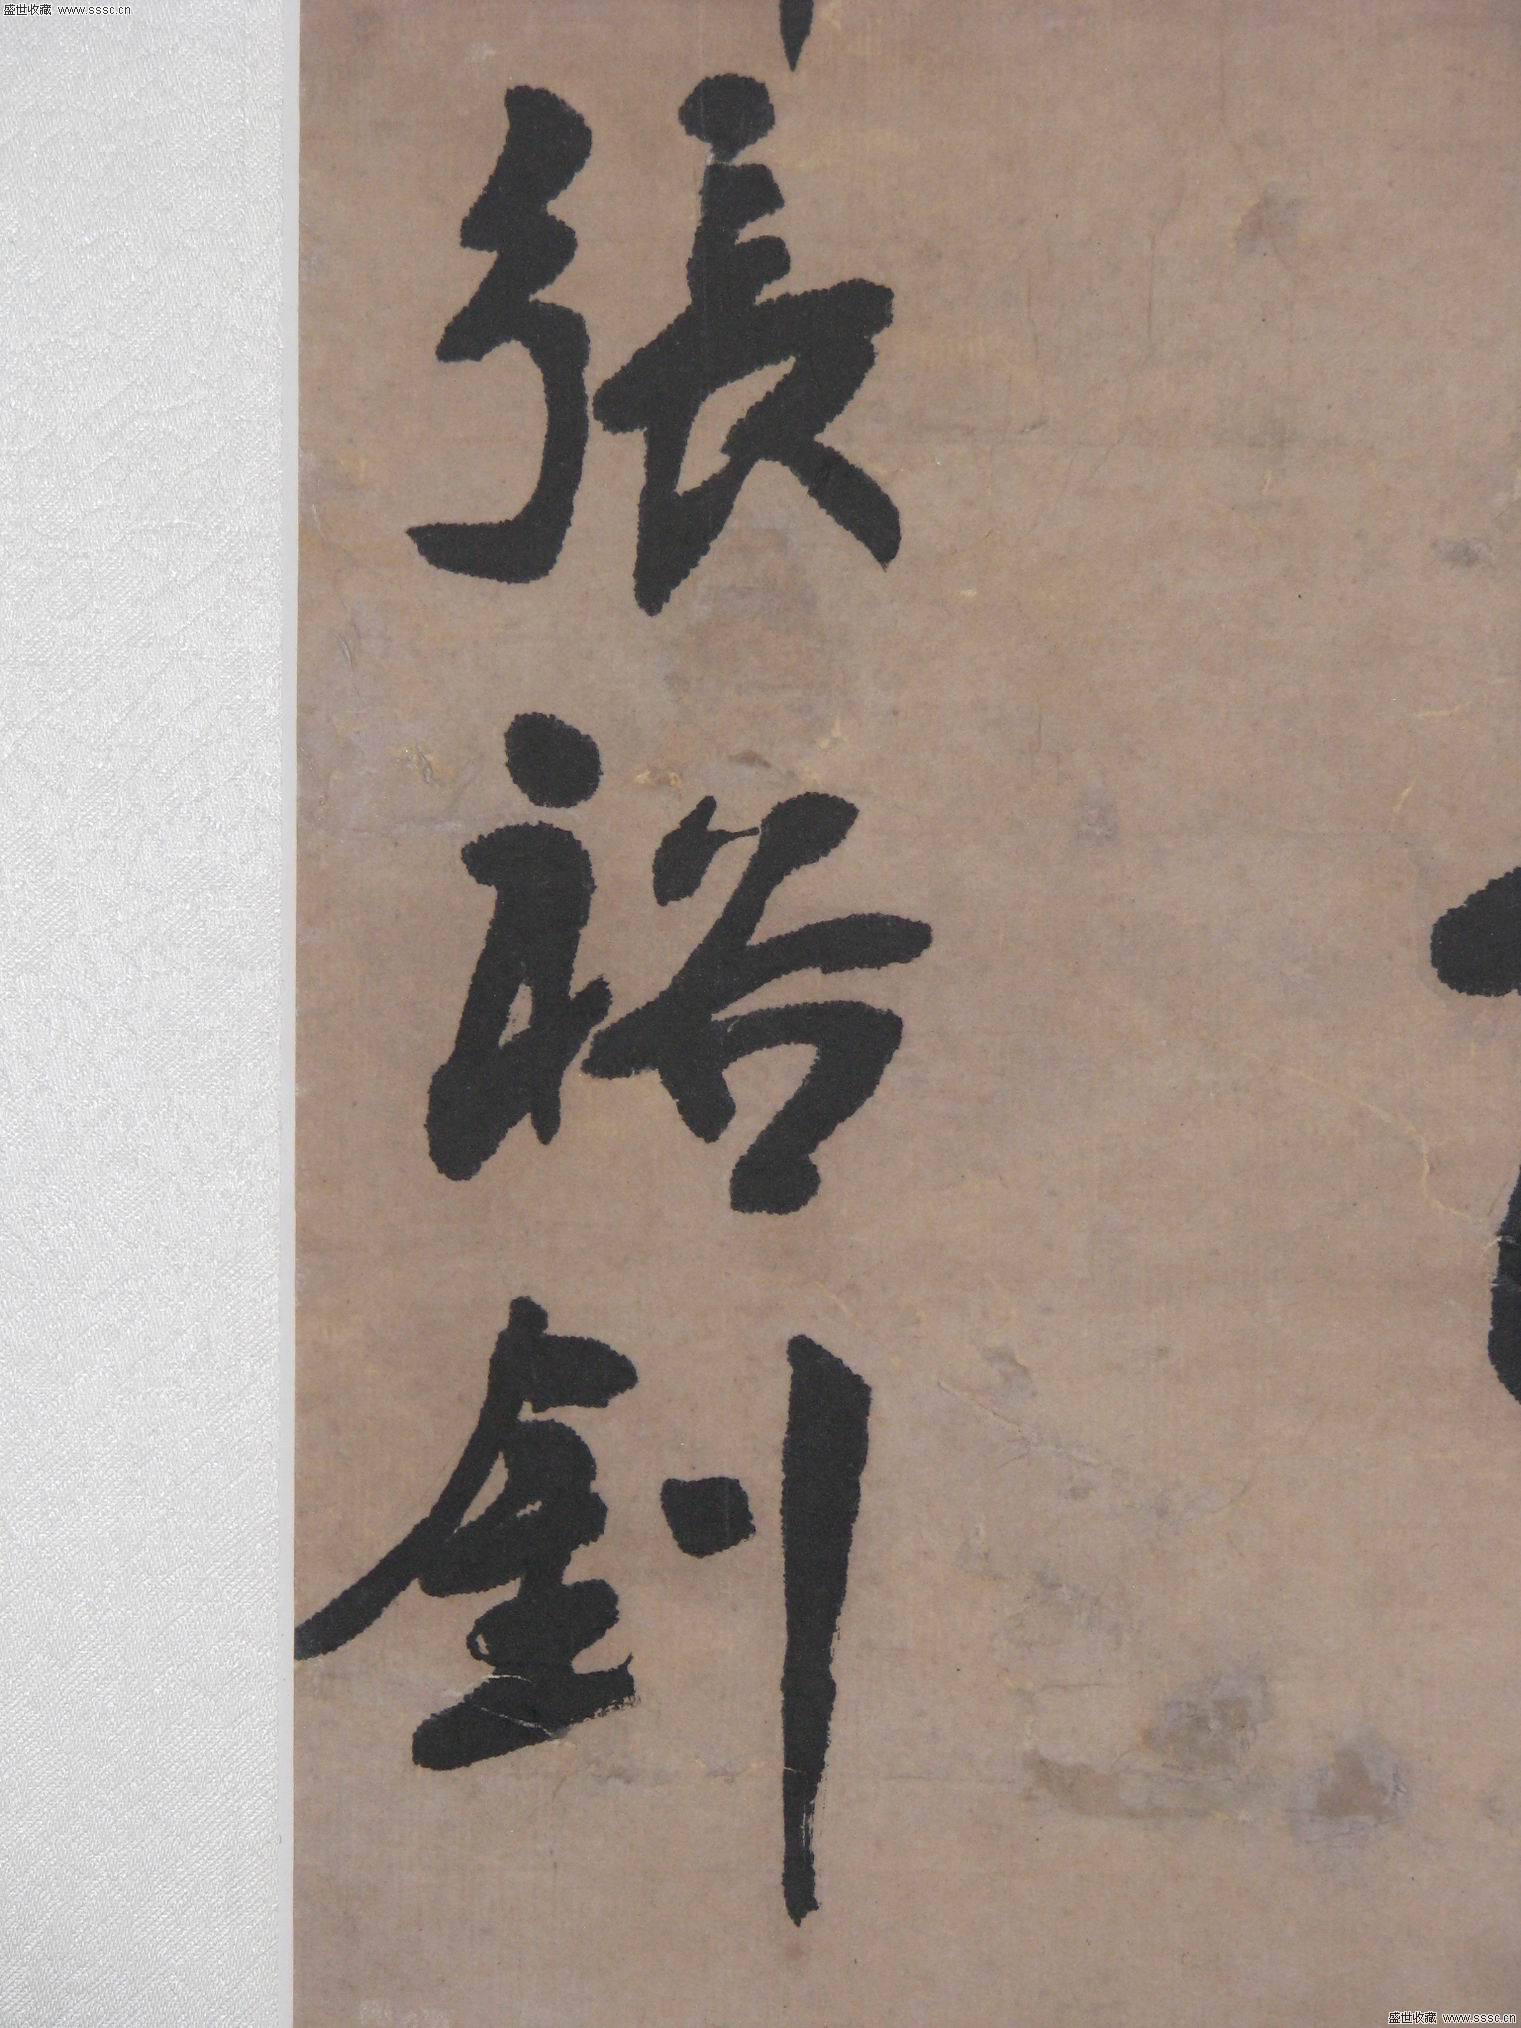 盛世收藏 www.sssc.cn
張裕釗
盛世收藏 www.sssc.cn